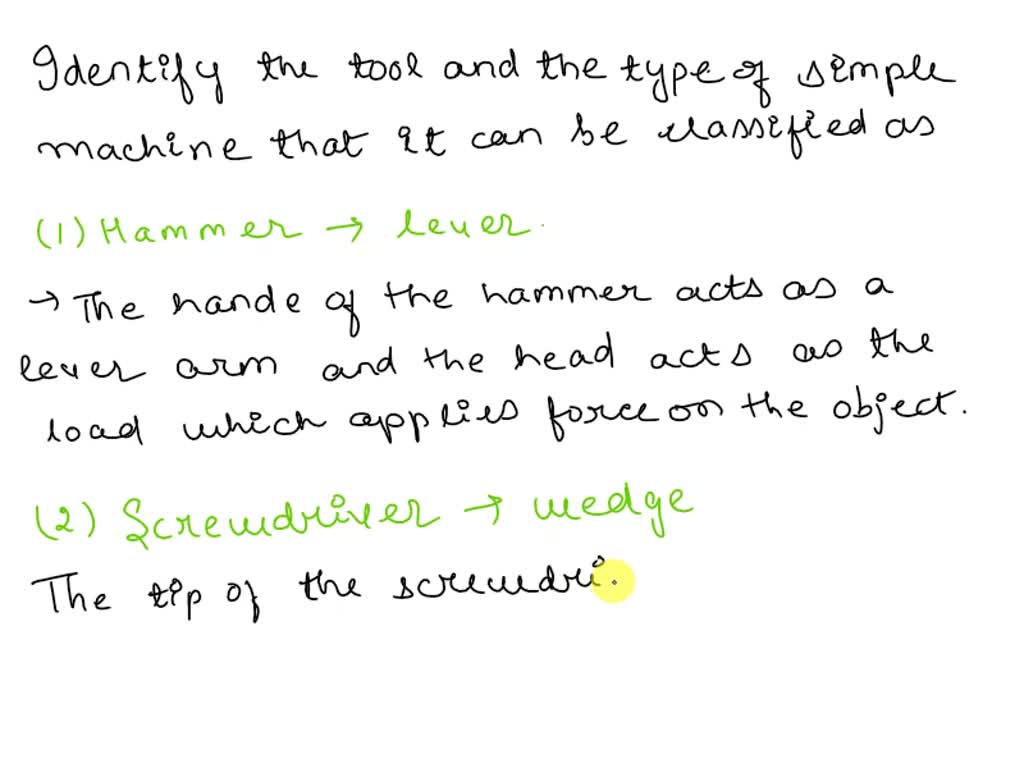 Identify the tool and the type of simple
machine that it can be classified as
(1) Hammer → lever.
→ The hande of the hammer acts as a
lever arm and the head acts as the
load which applies force on the object.
(2) Screwdriver → wedge
The tip of the screwdri